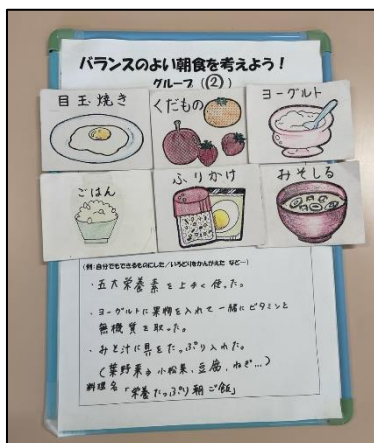 バランスのよい朝食を考えよう!
グループ(②)
目玉焼き
くだもの
ヨーグルト
ごはん
ふりかけ
みそしる
(例:自分でもできるものにした/いろどりをかんがえた など…)
・五大栄養素を上手く使った。
・ヨーグルトに果物を入れて一緒にビタミンと
無機質を取った。
・みそ汁に具をたっぷり入れた。
(葉野菜→小松菜、豆腐、ねぎ…)
料理名「栄養たっぷり朝ご飯」